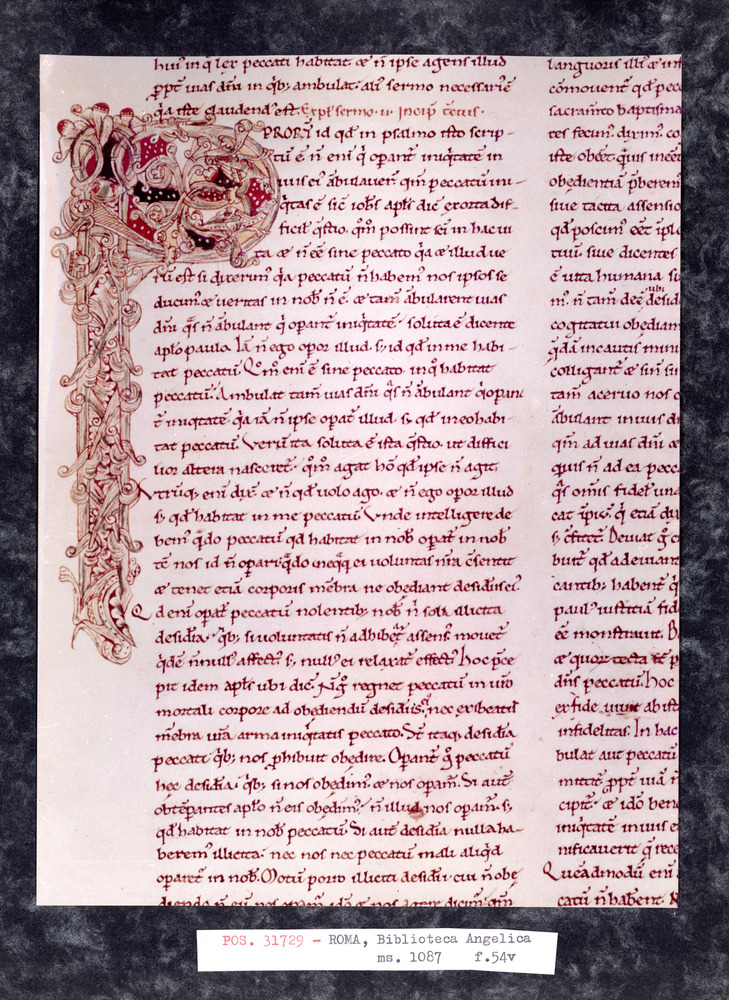 huiꝰ in q̃ lex peccati habitat & ñ ipse agens illud
ꝓpt̃ uias dñi in qͥbꝫ ambulat. aliꝰ sermo necessariꝰ ẽ
q̃a iste claudendꝰ est. Expł sermo. ii. Incip̃ tẽrtiꝰ.
PRORṼ id qđ in psalmo isto scrip-
tũ ẽ ñ eni q̃ opant̃ iniq̃tatẽ in
uiis eiꝰ ãbulauer̃ qm̃ peccatũ ini-
q̃tas ẽ sic̃ iohẽs apłs dic̃ exorta dif-
ficił q̃stio. qm̃ possint sc̃i in hac ui
ta & ñ ẽe sine peccato q̃a & illud ue
rũ est si dixerimꝰ q̃a peccatũ ñ habemꝰ nos ipsos se
ducimꝰ & ueritas in nob̃ ñ ẽ. & tam̃ ãbularent uias
dñi q̃s ñ ãbulant q̃ opant̃ iniq̃tatẽ. soluta ẽ dicente
apło paulo. Iã ñ ego opor illud. sꝫ id qđ in me habi-
tat peccatũ. Qm̃ eni ẽ sine peccato. in q̃ habitat
peccatũ. Ambulat tam̃ uias dñi q̃s ñ ãbulant q̃ opan
t̃ iniq̃tatẽ q̃a iã ñ ipse opat̃ illud. sꝫ qđ in eo habi-
tat peccatũ. Verũ ita soluta ẽ ista q̃stio. ut diffici
lior altera nasceret̃. qm̃ agat hõ qđ ipse ñ agit.
Vtrũq; eni dix̃. & ñ qđ uolo ago. & ñ ego opor illud
sꝫ qđ habitat in me peccatũ. Vnde intelligere de
bemꝰ q̃do peccatũ qđ habitat in nob̃ opat̃ in nob̃
tc̃ nos id ñ opari. q̃do neq̃q̃ ei uoluntas nr̃a c̃sentit
& tenet etiã corporis mẽbra ne obediant desidiis eiꝰ.
Qd eni opat̃ peccatũ nolentibꝫ nob̃ ñ sola illicita
desidia. qͥbꝫ si uoluntatis ñ adhibet̃ assensꝰ mouet̃
q̃dẽ ñ nullꝰ affectꝰ sꝫ nullꝰ ei relaxat̃ effectꝰ hoc p̃ce
pit idem apłs ubi dic̃. ñ g̃ regnet peccatũ in ur̃o
mortali corpore ad obediendũ desidiis eiꝰ nec exibeatis
mẽbra ur̃a arma iniq̃tatis peccato. St̃ itaq; desidia
peccati qͥbꝫ nos phibuit obedire. Opant̃ g̃ peccatũ
hec desidia. qͥbꝫ si nos obedimꝰ & nos opam̃. Si aut̃
obtẽpantes apło ñ eis obedimꝰ. ñ illud nos opam̃. sꝫ
qđ habitat in nob̃ peccatũ. Si aut̃ desidia nulla ha-
beremꝰ illicita. nec nos nec peccatũ mali aliq̃d
oparet̃ in nob̃. Motũ porro illiciti desidii. cui ñ obe
languoris illi & in
cõmouent̃ qđ pecc
sacram̃to baptisma
tes fecim. dixim. co
iste obẽt. q̃uis ineẽt
obedientia p̃berem
siue tacita assensio
qđ poscim̃ oẽt ipl
tiui. siue dicentes
ẽ uita humana si
m̃. ñ tam̃ deẽ ubi desid
cogitatui obediam
q̃dã incautis mini
colligant̃ & sin si
tam aceruo nos o
ãbulant in uiis dñ
qm̃ ad uias dñi &
quis ñ ad ea pecc
q̃s om̃is fideł una
eat ip̃iꝰ. q̃ etiã du
sꝫ c̃fitet̃. Deuiat g̃ c̃
buit̃ qđ a deuiant
cantibꝫ. habent̃ q̃
paulꝰ iustitiã fid
ẽe monstrauit. D
& quor tecta st̃ p
dñs peccatũ. hoc
ex fide uiuit ab ist
infidelitas. In hac
bulat aut peccatũ
mittit̃ ꝓpt̃ uiã ñ
cipit̃. & idõ ben
iniq̃tatẽ in uiis e
nificauerit q̃ rece
Queãdmodũ eni
catũ ñ habent. N
POS. 31729 - ROMA, Biblioteca Angelica
ms. 1087 f.54v